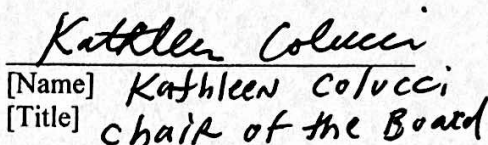 Kathleen Colucci
[Name] Kathleen Colucci
[Title] Chair of the Board